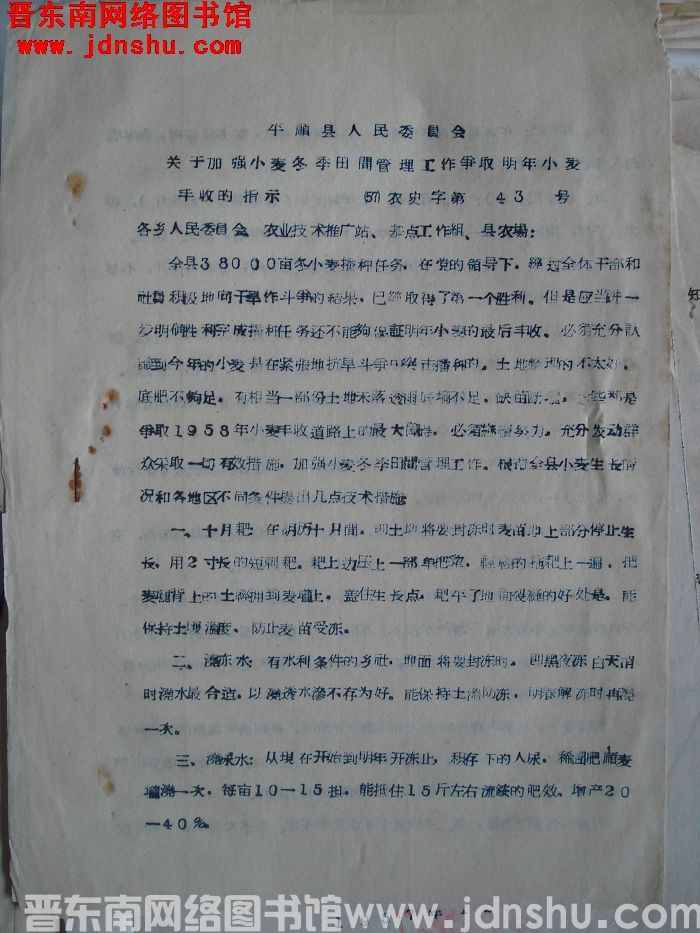 晋东南网络图书馆
www.jdnshu.com
平顺县人民委員会
关于加强小麦冬季田間管理工作爭取明年小麦
丰收的指示 (57)农史字第 43 号
各乡人民委員会、农业技术推广站、 点工作組、县农場：
全县38000亩冬小麦播种任务，在党的領导下，經过全体干部和
社員积极地向干旱作斗爭的結果，已經取得了第一个胜利。但是应当进一
步明确胜利完成播种任务还不能夠保証明年小麦的最后丰收。必須充分認
識到今年的小麦是在紧張地抗旱斗爭中突击播种的。土地整理的不太好，
底肥不夠足。有相当一部份土地未落透雨底墒不足，缺苗断壠。这些都是
爭取1958年小麦丰收道路上的最大障碍，必須継續努力。充分发动群
众采取一切有效措施，加强小麦冬季田間管理工作。根据全县小麦生长情
况和各地区不同条件提出几点技术措施
一、十月耙：在阴历十月間，即土地将要封冻时麦苗地上部分停止生
长，用2寸长的短刺耙。耙上边压上一部 ，輕輕的 耙上一遍，把
麦壠背上的土 拥到麦壠上，盖住生长点，耙平了地面裂縫的好处是，能
保持土壤温度，防止麦苗受冻。
二、澆冻水：有水利条件的乡社，地面将要封冻时，即黑夜冻白天消
时澆水最合适，以澆透水滲不存为好。能保持土温防冻，明春解冻时再澆
一次。
三、澆尿水：从現在开始到明年开冻止，积存下的人尿，稀圊肥順麦
壠澆一次，每亩10—15担，能抵住15斤左右流銨的肥效，增产20
—40%。
晋东南网络图书馆
www.jdnshu.com